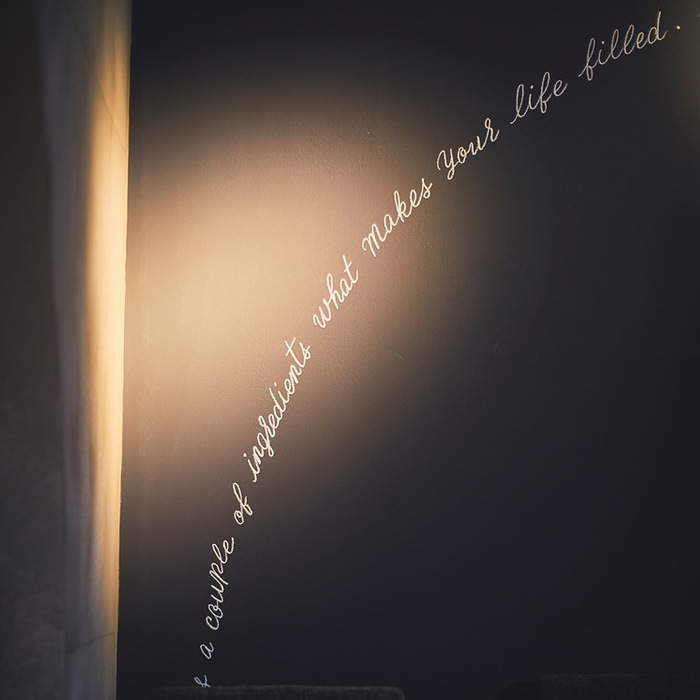 a couple of ingredients what makes your life filled.